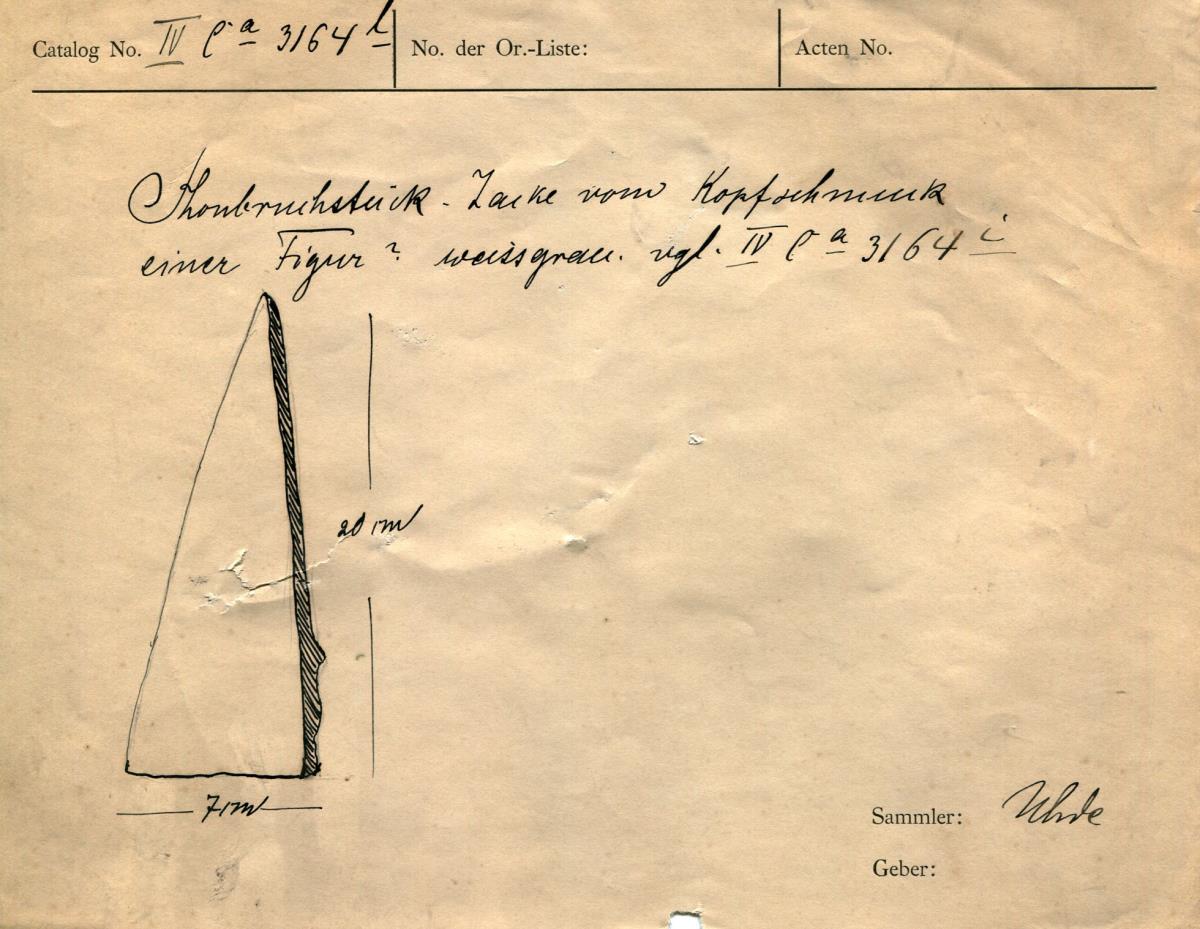 Catalog No. IV C a 3164 l No. der Or.-Liste: Acten No.
Thonbruchstück. Zacke vom Kopfschmuck
einer Figur? weissgrau. vgl. IV C a 3164 i
20 cm
7 cm
Sammler: Uhde
Geber: